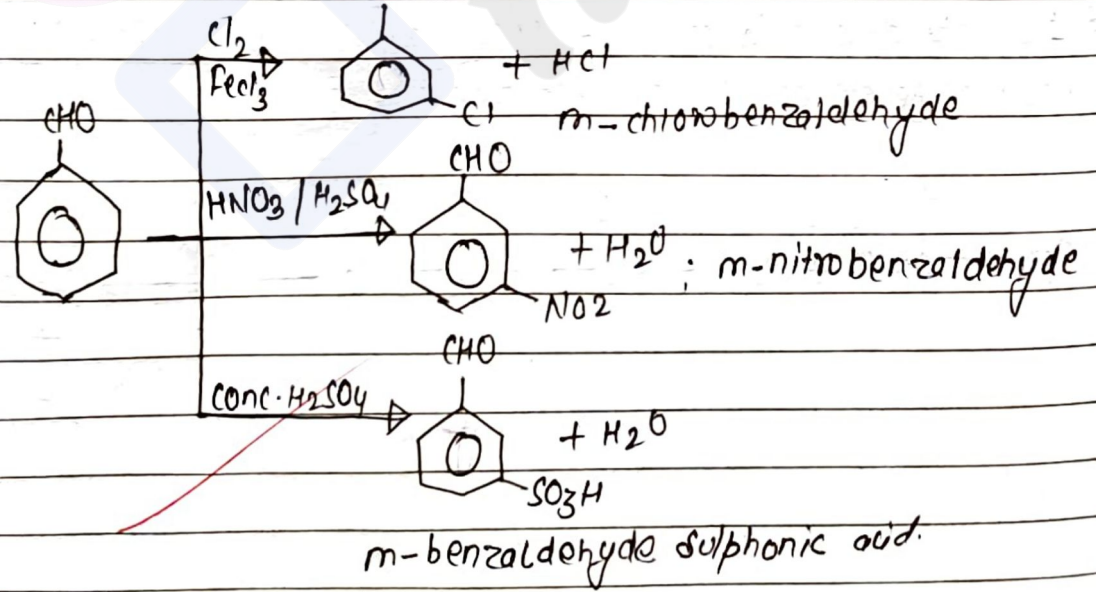 Cl2
Fecl3
+ HCl
Cl
m-chlorobenzaldehyde
CHO
CHO
HNO3 / H2SO4
+ H2O ; m-nitrobenzaldehyde
NO2
CHO
Conc. H2SO4
+ H2O
SO3H
m-benzaldehyde sulphonic acid.